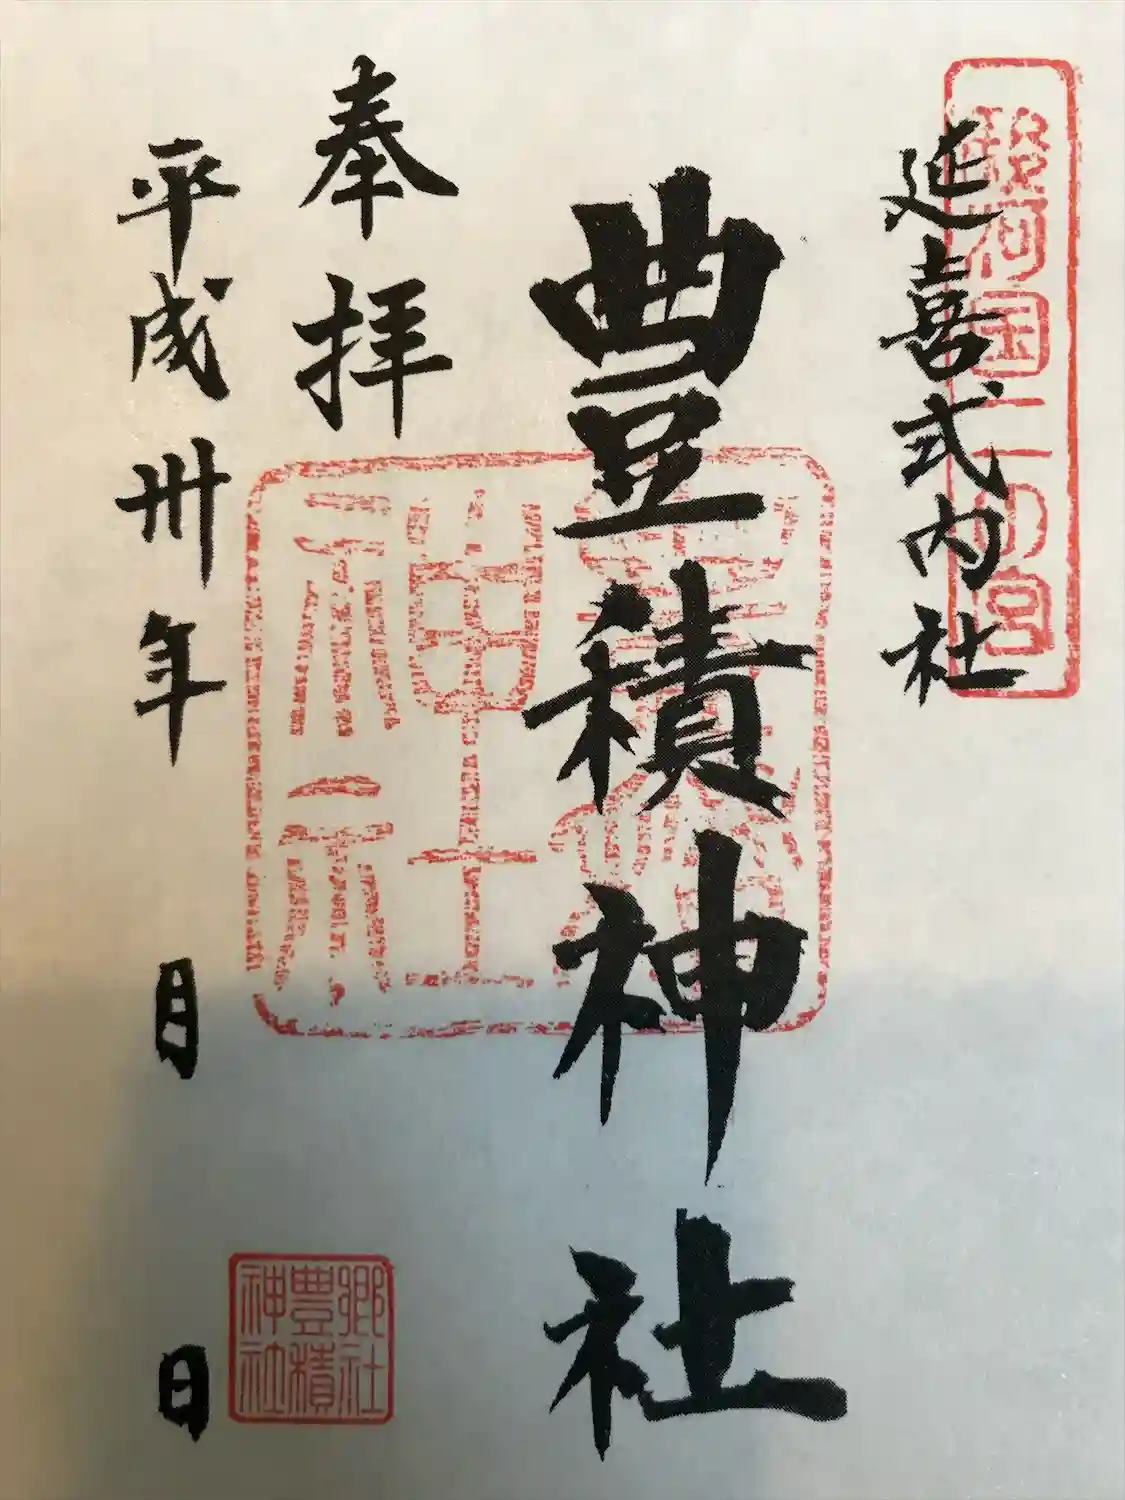 駿河国二の宮
延喜式内社
豊積神社
神社
奉拝
郷社
豊積
神社
平成卅年 月 日